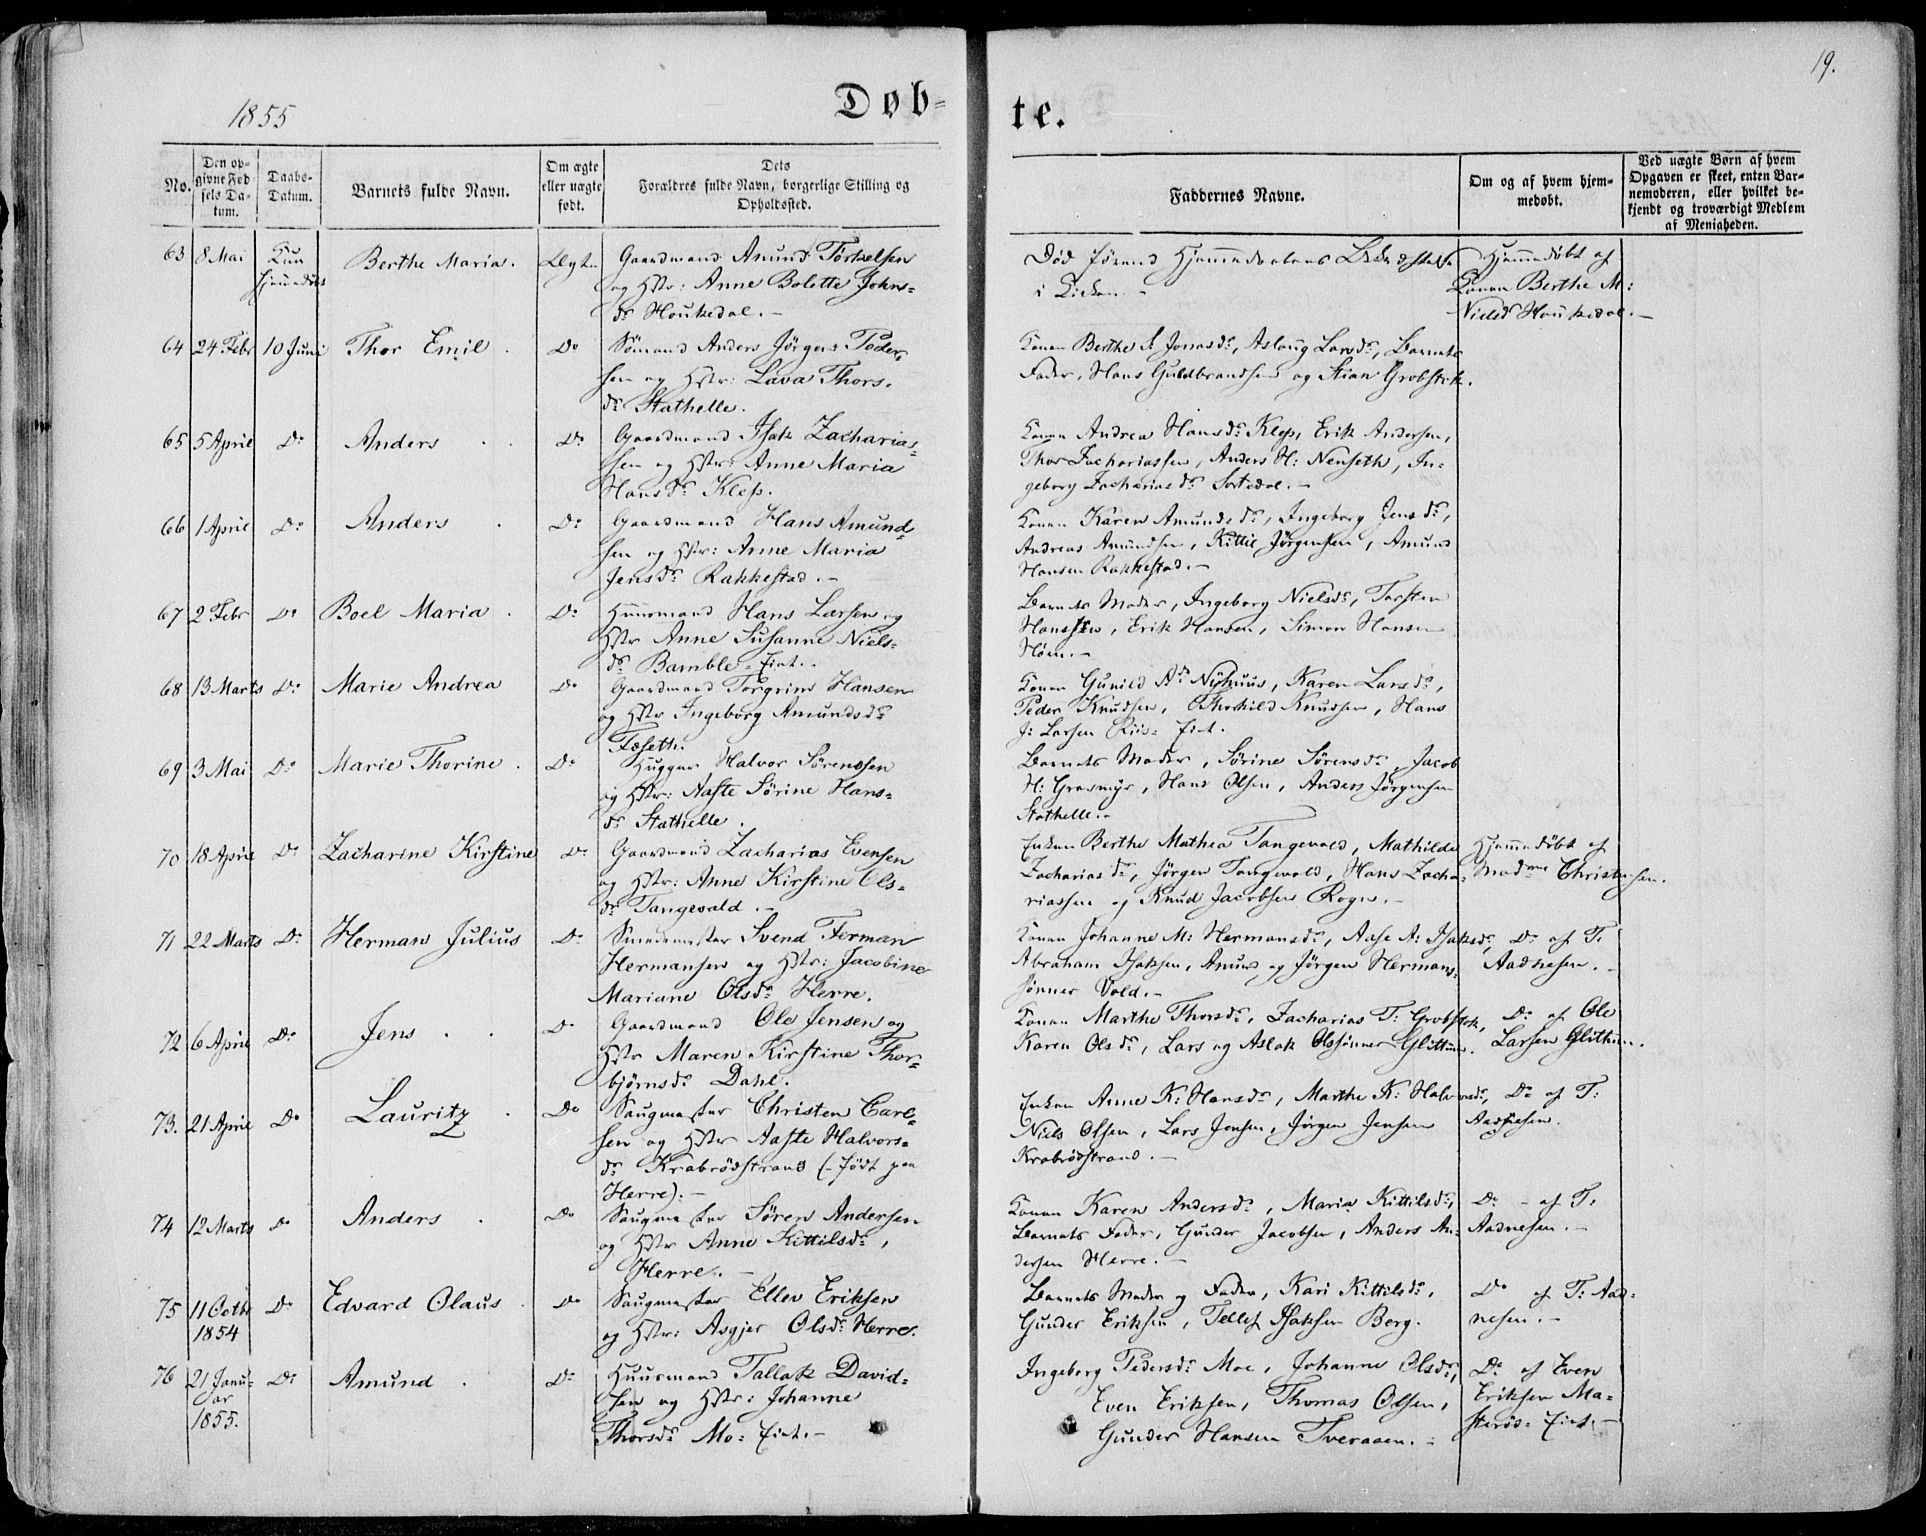 19.
1855
Døb=
te.
No.
Den op-
givne Fød
sels Da-
tum.
Daabs-
Datum.
Barnets fulde Navn.
Om ægte
eller uægte
født.
Dets
Forældres fulde Navn, borgerlige Stilling og
Opholdssted.
Faddernes Navne.
Om og af hvem hjem-
medøbt.
Ved uægte Børn af hvem
Opgaven er skeet, enten Bar-
nemoderen, eller hvilket be-
kjendt og troværdigt Medlem
af Menigheden.
63 8 Mai Kun Berthe Maria. Ægte Gaardmand Amund Torkelsen
hjemmedøbt og Hstr: Anne Bolette Johns-
dr Houkedal.-
Død førend Hjemmedaabens Stadfæstelse
i Kirken -
Hjemmedøbt af
Konen Berthe M:
Nielsd Houkedal.-
64 24 Febr 10 Juni Thor Emil. Do Sømand Anders Jørgens Peder-
sen og Hstr: Lava Thors-
dr Stathelle.
Konen Berthe S. Jonasdr, Aslaug Larsdr, Barnets
Fader, Hans Guldbrandsen og Stian Grobstok.
65 5 April Do Anders Do Gaardmand Isak Zacharias-
sen og Hstr: Anne Maria
Hansdr Klep.
Konen Andrea Hansdr Klep, Erik Andersen,
Thor Zachariassen, Anders H: Nenseth, In-
geborg Zachariasdr Sortedal.-
66 1 April Do Anders Do Gaardmand Hans Amund-
sen og Hstr: Anne Maria
Jensdr Rakkestad.-
Konen Karen Amundsdr, Ingeborg Jensdr,
Andreas Amundsen, Kittil Jørgensen, Amund
Hansen Rakkestad.-
67 2 Febr Do Boel Maria. Do Huusmand Hans Larsen og
Hstr Anne Susanne Niels-
dr Bamble-Eiet.-
Barnets Moder, Ingeborg Nielsdr, Torsten
Hanssen, Erik Hansen, Simon Hansen
Høen.-
68 13 Marts Do Marie Andrea Do Gaardmand Torgrim Hansen
og Hstr Ingeborg Amundsdr
Foseth.
Konen Gunild Adr Nyhuus, Karen Larsdr,
Peder Knudsen, Thorkild Knudsen, Hans
J: Larsen Riis-Eiet.
69 3 Mai Do Marie Thorine. Do Hugger Halvor Sørensen
og Hstr: Aaste Sørine Hans-
dr Stathelle.
Barnets Moder, Sørine Sørensdr, Jacob
H: Grasmyr, Hans Olsen, Anders Jørgensen
Stathelle.-
70 18 April Do Zacharine Kirstine Do Gaardmand Zacharias Evensen
og Hstr: Anne Kirstine Ols-
dr Tangevald.-
Enken Berthe Mathea Tangevald, Mathilde
Zachariasdr, Jørgen Tangevald, Hans Zacha-
riassen og Knud Jacobsen Rogn.-
Hjemmedøbt af
Madme Christensen.
71 22 Marts Do Herman Julius Do Smedemester Svend Ferman
Hermansen og Hstr: Jacobine
Mariane Olsdr Herre.
Konen Johanne M: Hermansdr, Aase A: Isaksdr,
Abraham Isaksen, Amund og Jørgen Hermans-
sønner Vold.-
Do af T:
Aadnesen.-
72 6 April Do Jens Do Gaardmand Ole Jensen og
Hstr Maren Kirstine Thor-
bjørnsdr Dahl.
Konen Marthe Thorsdr, Zacharias T: Grobstok,
Karen Olsdr, Lars og Aslak Olssønner Glittum.
Do af Ole
Larsen Glittum.
73. 21 April Do Lauritz Do Saugmester Christen Carl-
sen og Hstr Aaste Halvors-
dr Krabrödstrand (-Født paa
Herre).-
Enken Anne K: Hansdr, Marthe K: Halvorsdr,
Niels Olsen, Lars Jensen, Jørgen Jensen
Krabrödstrand.-
Do af T:
Aadnesen.
74 12 Marts Do Anders Do Saugmester Søren Andersen
og Hstr Anne Kittilsdr,
Herre.-
Konen Karen Andersdr, Maria Kittilsdr,
Barnets Fader, Gunder Jacobsen, Anders An-
dersen Herre.-
Do - af T:
Aadnesen.-
75 11 Octbr Do Edvard Olaus Do Saugmester Ellev Eriksen
1854 og Hstr: Asgjer Olsdr Herre.
Barnets Moder og Fader, Kari Kittilsdr,
Gunder Eriksen, Tellef Isaksen Berg.
Do af T: Aad-
nesen.-
76 21 Janu- Do Amund Do Huusmand Tallak David-
ar sen og Hstr: Johanne
1855. Thorsdr Mo-Eiet.-
Ingeborg Pedersdr Moe, Johanne Olsdr,
Even Eriksen, Thomas Olsen,
Gunder Hansen Tveraaen.-
Do af Even
Eriksen Ma-
sterød-Eiet.-